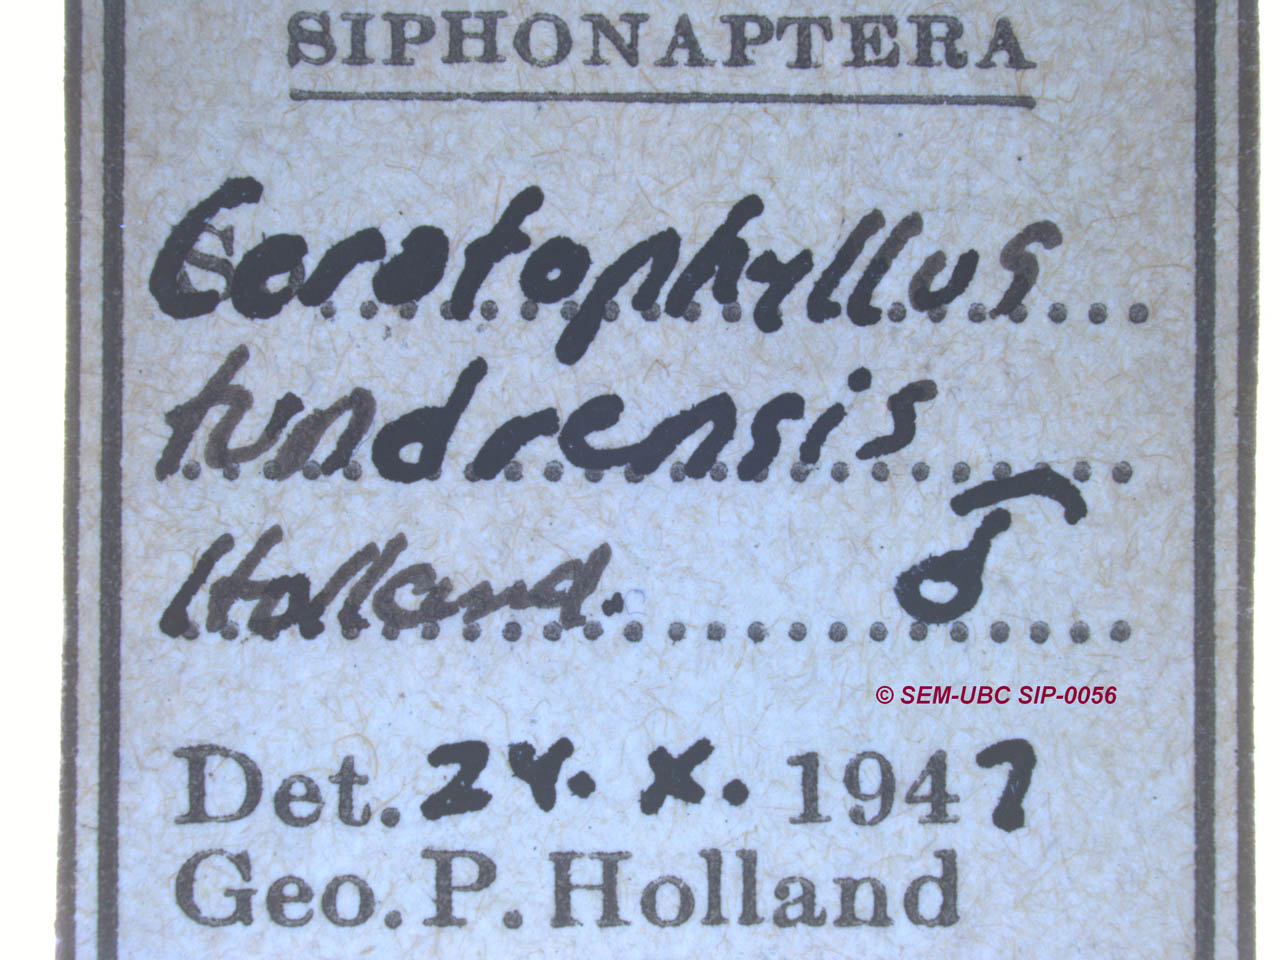 SIPHONAPTERA
Ceratophyllus
tundrensis
Holland. ♂
© SEM-UBC SIP-0056
Det. 24. X. 1947
Geo. P. Holland